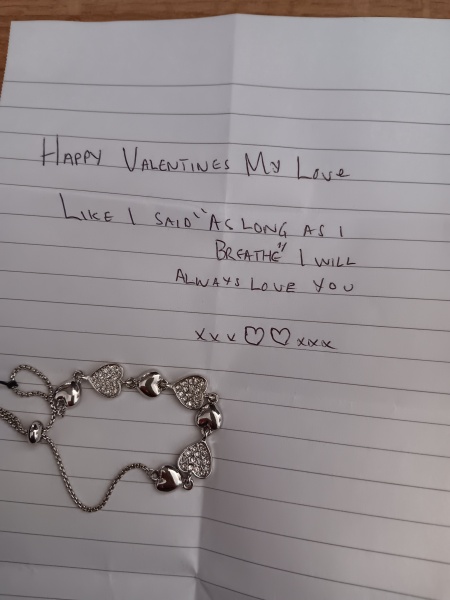 HAPPY VALENTINES MY LOVE
LIKE I SAID "AS LONG AS I
BREATHE" I WILL
ALWAYS LOVE YOU
xxx♡♡xxx